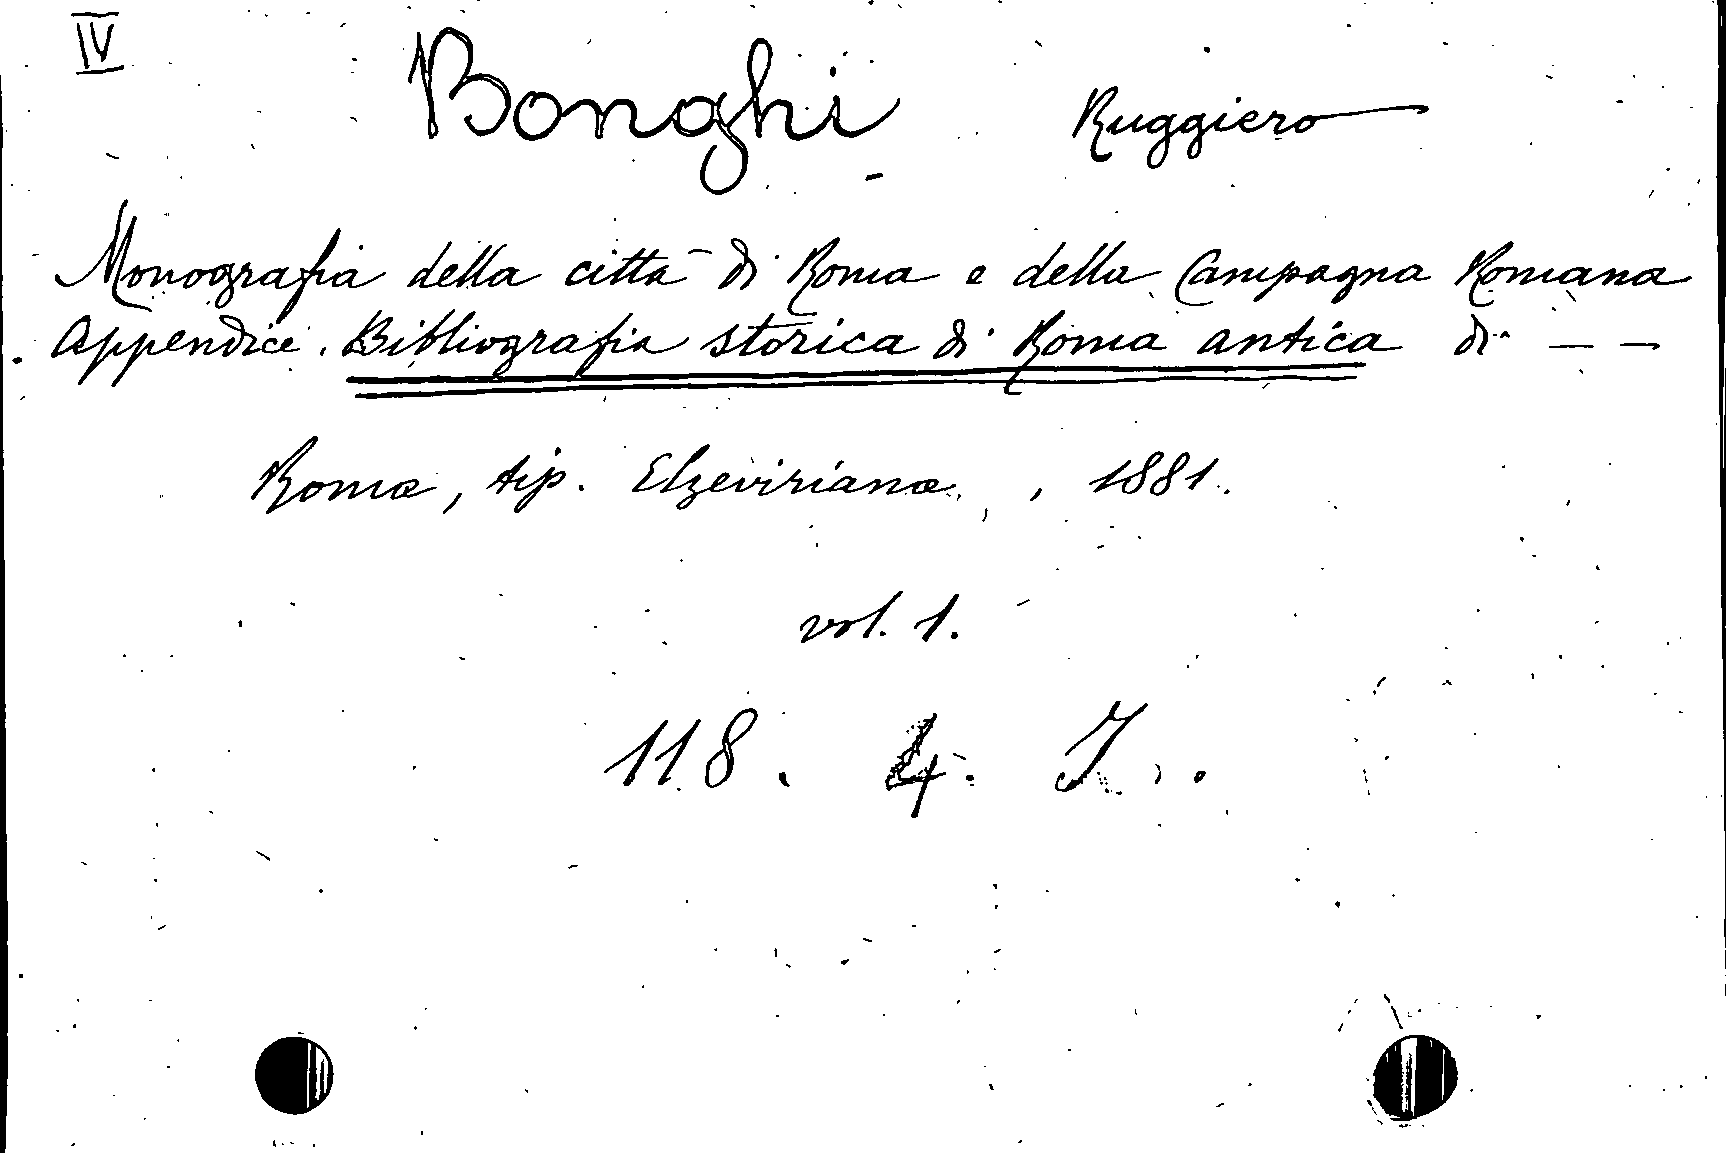 IV
Bonghi Ruggiero
Monografia della città di Roma e della Campagna Romana
Appendice. Bibliografia storica di Roma antica di — —
Roma, tip. Elzeviriana, 1881.
vol. 1.
118. 4. J.